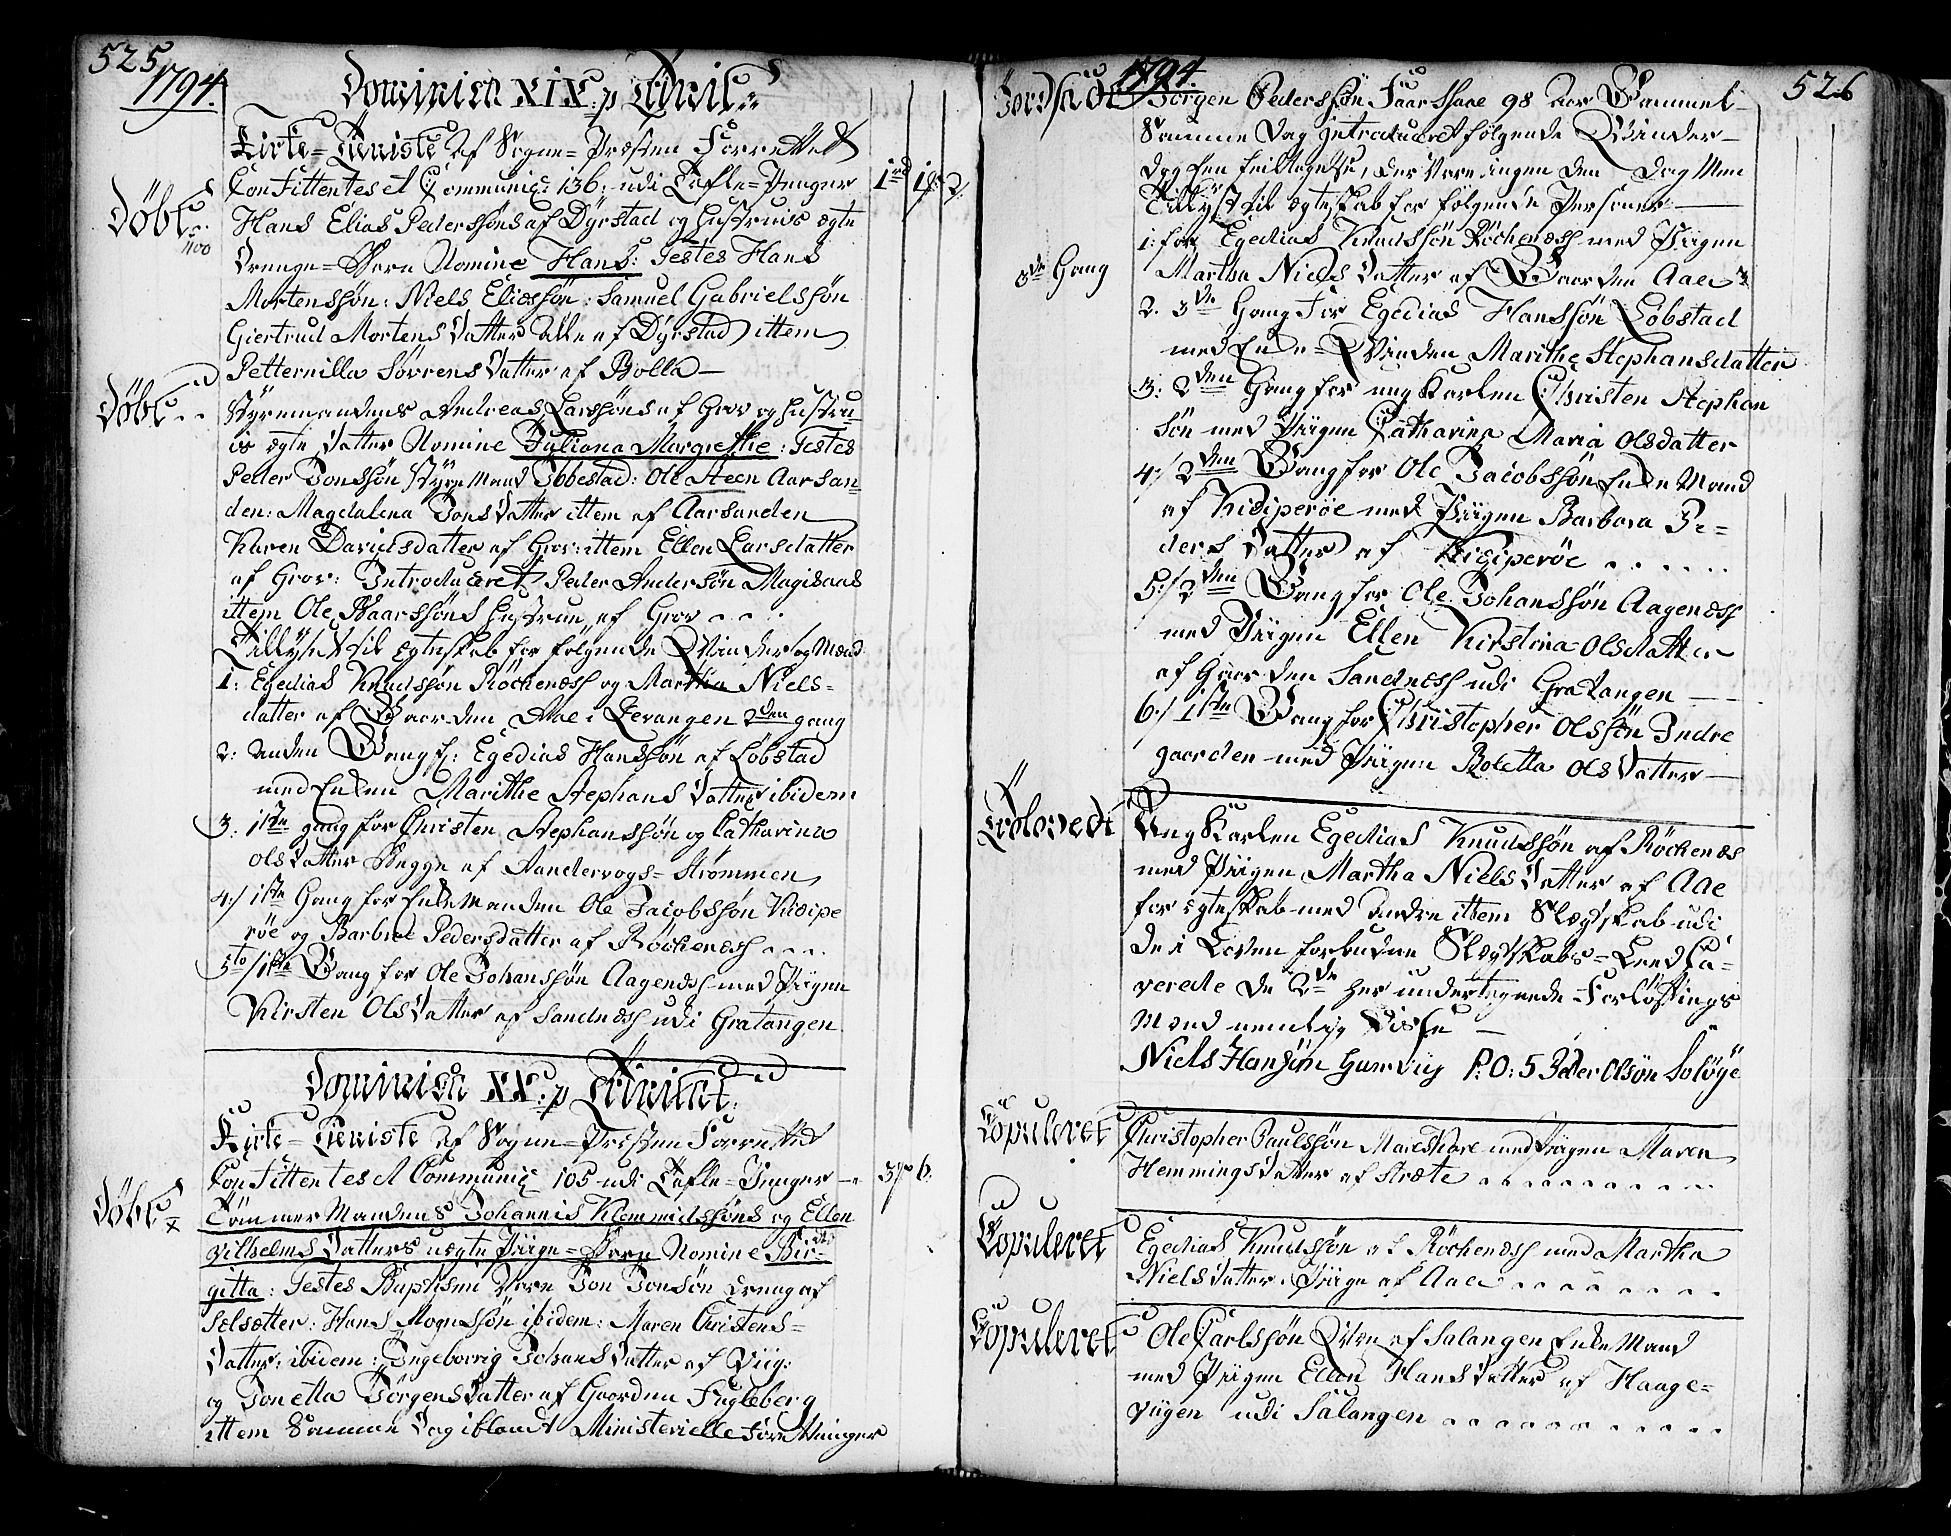 525
1794.
Dominica XIX: p Trinit:
Kirke=Tieniste af Sogne=Præsten Forrettet
Confittentes et Communic: 136: udi Tafle=Penger
Døbt
Hans Elias Pederssøns af Dyrstad og Hustruis ægte
Drenge=Barn Nomine Hans: Testes Hans
Mortenssøn: Niels Eliassøn: Samuel Gabrielssøn
Giertrud Mortens Datter alle af Dyrstad ittem
Petternilla Sørrens Datter af Bolla
Døbt
Styrmandens Andreas Larssøns af Grov og Hustru
is ægte Datter Nomine Juliana Margrethe: Testes
Peder Jonssøn Styrmand Ibbestad: Ole Steen Aarsan=
den: Magdalena Jons Datter ittem af Aarsanden
Karen Davidsdatter af Grov: ittem Ellen Larsdatter
af Grov: Introduceret Peder Andersøn Magisaas
ittem Ole Haarssøns Hustrue af Grov
Tillyst til ægteskab for følgende Qvinder og Mænd
1: Egedias Knudssøn Röckenæss og Martha Niels=
datter af Gaarden Aae i Levangen 2den gang
2: anden Gang f: Egedias Hanssøn af Løbstad
med Enken Marithe Stephans Datter ibidem
3: 1ste gang for Christen Stephanssøn og Catharina
Ols Datter Begge af Sandervogs=Strømmen
4:/ 1ste Gang for Enkemanden Ole Jacobssøn Kidipe
røe og Barbroe Pedersdatter af Röckenæss
5to/ 1ste Gang for Ole Johanssøn Aagenæss med Piigen
Kirsten Ols Datter af Sandnæss udi Gratangen
Dominica XX: p Trinitat:
Kirke=Tieniste af Sogne=Præsten Forrettet
Confittentes et Communic 105 udi Tafle=Penger
Døbt
Tømmer Mandens Johannis Klemmidssøns og Ellen
Vilhelms Datters uægte Piige=Barn Nomine Bir=
gitta: Testes Baptismi Vare Jon Jonsøn Dreng af
Selsætter: Hans Mognssøn ibidem: Maren Christens=
Datter: ibidem: Ingeborrig Johans Datter af Viig:
og Jonetta Jørgens Datter af Gaarden Fugleberg
ittem Samme Dag iblandt Ministerielle Forretninger
1794.
526
Jordfæstet
Jørgen Pederssøn 98 Aar Gammel
Samme Dag Introduceret følgende Qvinder
Dog een feiltagelse, der vare ingen den Dag Men
Tillyst til ægteskab for følgende Personer
3de Gang
1: for Egedias Knudssøn Röckenæss med Piigen
Martha Niels Datter af Gaarden Aae
2. 3de Gang for Egedias Hanssøn Løbstad
med Enke=Qvinden Marithe Stephansdatter
3: 2den Gang for ung Karlen Christen Stephan
søn med Piigen Catharina Maria Olsdatter
4:/ 2den Gang for Ole Jacobssøn Enke Mand
af Kidiperøe med Piigen Barbara Pe=
ders Datter af Kidiperøe
5:/ 2den Gang for Ole Johanssøn Aagenæss
med Piigen Ellen Kirstina Olsdatter
af Gaarden Sandnæss udi Gratangen
6:/ 1ste Gang for Christopher Olssøn Indre
gaarden med Piigen Boletta Ols Datter
Trolovedt
Ung Karlen Egedias Knudssøn af Röckenæs
med Piigen Martha Niels Datter af Aae
for ægteskab med andre ittem Slegtskab udi
de i Loven forbudne Slegtskabs=Leed Ca=
verede de 2de her undertegnede Forlovings
Mænd nemlig Disse
Niels Hansøn Hamvig P: O: S Peder Olsøn Soløye
Copuleret
Christopher Paulssøn med Piigen Maren
Hemmings Datter af Stræte
Copuleret
Egedias Knudssøn af Röckenæss med Martha
Niels Datter Piige af Aae
Copuleret
Ole Carlssøn Qvæn af Salangen Enke Mand
med Piigen Ellen Hans Datter af Haage=
viigen udi Salangen